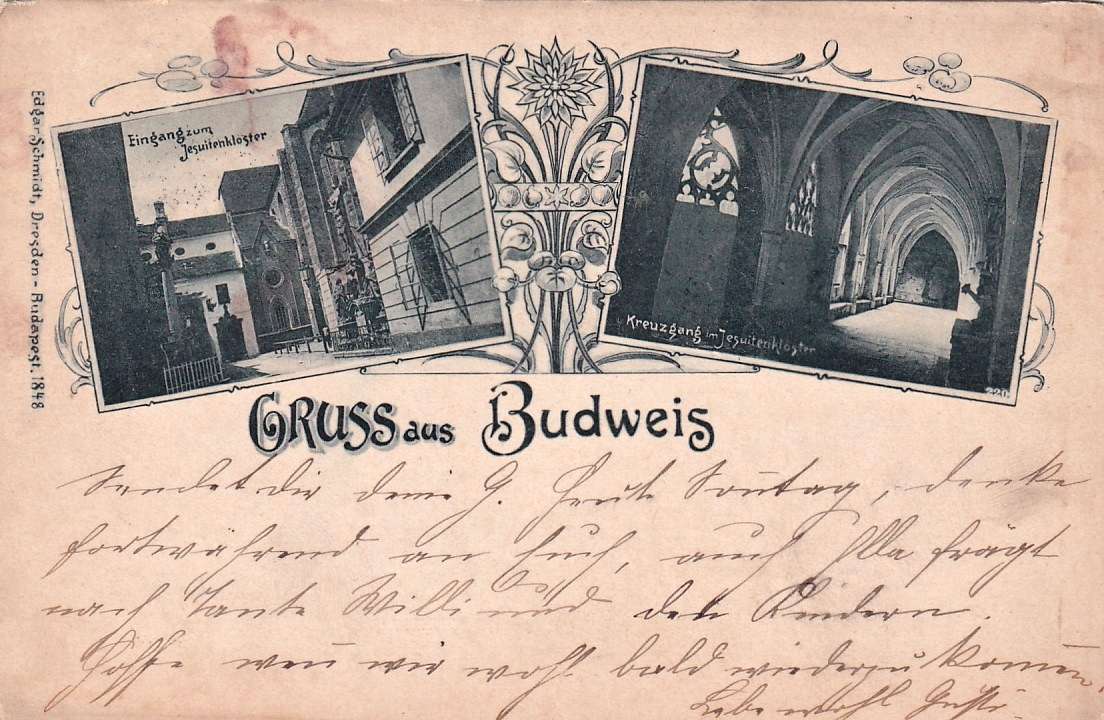 Edgar Schmidt, Dresden - Budapest. 1848
Eingang zum
Jesuitenkloster
Kreuzgang im Jesuitenkloster
220.
GRUSS aus Budweis
Sendet dir deine G. Heute Sontag, denke
fortwährend an Euch, auch Ella frägt
nach Tante Willi und den Kindern.
Hoffe wen wir wohl bald wiederzukomen.
Lebe wohl Gusti.